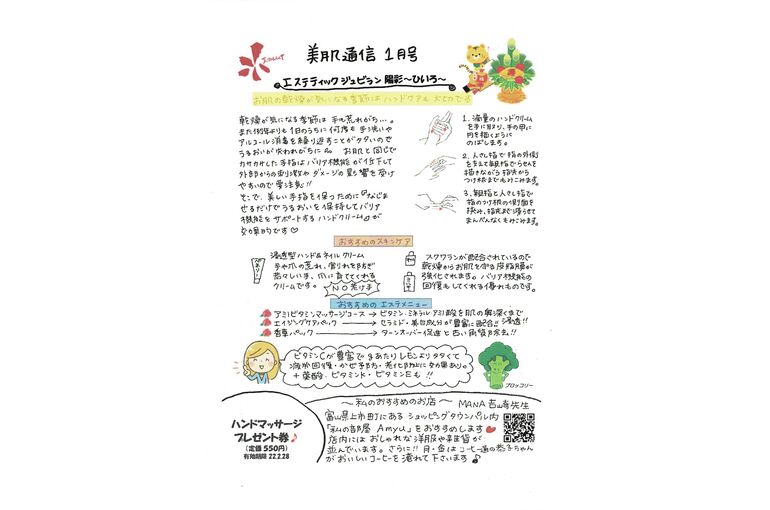 美肌通信 1月号
エステティック ジュビラン 陽彩～ひいろ～
お肌の乾燥が気になる季節は ハンドケアも 大切です
乾燥が気になる季節は 手も荒れがち…。
また例年よりも 1日のうちに何度も 手洗いや
アルコール消毒を繰り返すことがタタいので
うるおいが失われがちに お肌と同じで
カサカサした手指は バリア機能が低下して
外部からの刺激や ダメージの影響を受け
やすいので要注意!!
そこで、美しい手指を保つために『なじま
せるだけでうるおいを保持してバリア
機能をサポートするハンドクリーム』が
効果的です♡
1. 適量のハンドクリーム
を手に取り、手の甲に
円を描くように
のばします。
2. 人さし指で 指の外側
を支えて親指でらせんを
描きながら 指先から
つけ根までもみこみます。
3. 親指と人さし指で
指のつけ根の側面を
挟み、指先まで滑らせて
まんべんなくもみこみます。
おすすめのスキンケア
浸透型 ハンド&ネイル クリーム
手や爪の荒れ、割れを防ぎ
若々しい手、爪に育ててくれる
クリームです。
NO 荒れ手
スクワランが配合されているので
乾燥からお肌を守る皮脂膜が
強化されます。バリア機能の
回復もしてくれる優れものです。
おすすめの エステメニュー
アミノビタミンマッサージコース → ビタミン・ミネラル アミノ酸を肌の奥深くまで
浸透!!
エイジングケアパック → セラミド・美白成分が豊富に配合!!
香草パック → ターンオーバー促進と古い角質除去!!
ビタミンCが豊富で gあたりレモンよりタタくて
疲労回復・かぜ予防・老化防止に効果あり
+ 葉酸、ビタミンK・ビタミンEも!!
ブロッコリー
～私のおすすめのお店～ MANA 吉山奇先生
ハンドマッサージ
プレゼント券♪
(定価550円)
有効期限 22.2.28
富山県上市町にある ショッピングタウンパル内
「私の部屋 Amyu」をおすすめします
店内には おしゃれな洋服や雑貨が
並んでいます。さらに!! 月・金は コーヒー通の
がおいしいコーヒーを淹れて下さいます♪